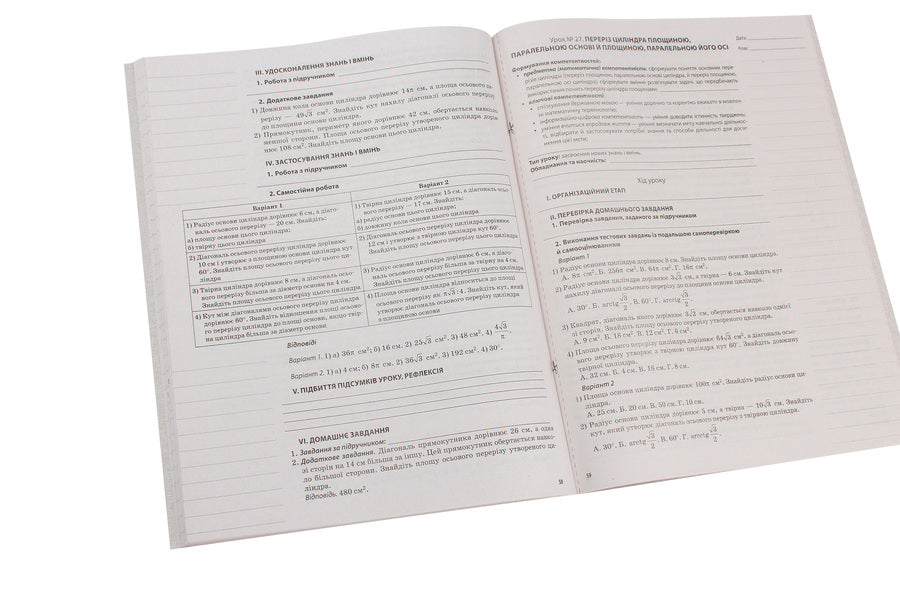 III. УДОСКОНАЛЕННЯ ЗНАНЬ І ВМІНЬ
1. Робота з підручником
2. Додаткове завдання
1) Довжина кола основи циліндра дорівнює 14π см, а площа осьового пе-
рерізу — 49√3 см². Знайдіть кут нахилу діагоналі осьового перерізу
до площини основи циліндра.
2) Прямокутник, периметр якого дорівнює 42 см, обертається навколо
меншої сторони. Площа осьового перерізу утвореного циліндра дорів-
нює 108 см². Знайдіть площу основи цього циліндра.
IV. ЗАСТОСУВАННЯ ЗНАНЬ І ВМІНЬ
1. Робота з підручником
2. Самостійна робота
Варіант 1
1) Радіус основи циліндра дорівнює 6 см, а діаго-
наль осьового перерізу — 20 см. Знайдіть:
а) площу основи циліндра;
б) твірну цього циліндра
2) Діагональ осьового перерізу циліндра дорівнює
10 см і утворює з площиною основи циліндра кут
60°. Знайдіть площу осьового перерізу цього ци-
ліндра
3) Твірна циліндра дорівнює 8 см, а діагональ осьо-
вого перерізу більша за діаметр основи на 4 см.
Знайдіть площу осьового перерізу цього циліндра
4) Кут між діагоналями осьового перерізу циліндра
дорівнює 60°. Знайдіть відношення площі осьово-
го перерізу циліндра до площі основи, якщо твір-
на циліндра більша за діаметр основи
Варіант 2
1) Твірна циліндра дорівнює 15 см, а діагональ осьо-
вого перерізу — 17 см. Знайдіть:
а) радіус основи цього циліндра;
б) довжину кола основи циліндра
2) Діагональ осьового перерізу циліндра дорівнює
12 см і утворює з твірною циліндра кут 60°.
Знайдіть площу осьового перерізу цього циліндра
3) Радіус основи циліндра дорівнює 6 см, а діаго-
наль осьового перерізу більша за твірну на 4 см.
Знайдіть площу осьового перерізу цього циліндра
4) Площа основи циліндра відноситься до площі
осьового перерізу як π√3 : 4. Знайдіть кут, який
утворює діагональ осьового перерізу циліндра
з площиною основи
Відповіді
Варіант 1. 1) а) 36π см²; б) 16 см. 2) 25√3 см². 3) 48 см². 4) 4√3/π.
Варіант 2. 1) а) 4 см; б) 8π см. 2) 36√3 см². 3) 192 см². 4) 30°.
V. ПІДБИТТЯ ПІДСУМКІВ УРОКУ, РЕФЛЕКСІЯ
VI. ДОМАШНЄ ЗАВДАННЯ
1. Завдання за підручником:
2. Додаткове завдання. Діагональ прямокутника дорівнює 26 см, а одна
зі сторін на 14 см більша за іншу. Цей прямокутник обертається навко-
ло більшої сторони. Знайдіть площу осьового перерізу утвореного ци-
ліндра.
Відповідь. 480 см².
Урок № 27. ПЕРЕРІЗ ЦИЛІНДРА ПЛОЩИНОЮ,
ПАРАЛЕЛЬНОЮ ОСНОВІ Й ПЛОЩИНОЮ, ПАРАЛЕЛЬНОЮ ЙОГО ОСІ
Дата
Клас
Формування компетентностей:
• предметна (математична) компетентність: сформувати поняття основних пере-
різів циліндра (переріз площиною, паралельною основі циліндра, й переріз площиною,
паралельною осі циліндра); сформувати вміння розв'язувати задачі, що передбачають
використання понять перерізу циліндра площинами;
• ключові компетентності:
• спілкування державною мовою — уміння доречно та коректно вживати в мовлен-
ні математичну термінологію;
• інформаційно-цифрова компетентність — уміння доводити істинність тверджень;
• уміння вчитися впродовж життя — уміння визначати мету навчальної діяльнос-
ті, відбирати й застосовувати потрібні знання та способи діяльності для досяг-
нення цієї мети;
Тип уроку: засвоєння нових знань і вмінь.
Обладнання та наочність:
Хід уроку
I. ОРГАНІЗАЦІЙНИЙ ЕТАП
II. ПЕРЕВІРКА ДОМАШНЬОГО ЗАВДАННЯ
1. Перевірка завдання, заданого за підручником
2. Виконання тестових завдань із подальшою самоперевіркою
й самооцінюванням
Варіант 1
1) Радіус основи циліндра дорівнює 8 см. Знайдіть площу основи циліндра.
А. 8π см². Б. 256π см². В. 64π см². Г. 16π см².
2) Радіус основи циліндра дорівнює 3√3 см, а твірна — 6 см. Знайдіть кут
нахилу діагоналі осьового перерізу до площини основи циліндра.
А. 30°. Б. arctg √3/2. В. 60°. Г. arcctg √3/2.
3) Квадрат, діагональ якого дорівнює 3√2 см, обертається навколо однієї
зі сторін. Знайдіть площу осьового перерізу утвореного циліндра.
А. 9 см². Б. 18 см². В. 12 см². Г. 6 см².
4) Площа осьового перерізу циліндра дорівнює 64√3 см², а діагональ осьо-
вого перерізу утворює з твірною циліндра кут 60°. Знайдіть довжину
твірної циліндра.
А. 32 см. Б. 4 см. В. 16 см. Г. 8 см.
Варіант 2
1) Площа основи циліндра дорівнює 100π см². Знайдіть радіус основи ци-
ліндра.
А. 25 см. Б. 20 см. В. 50 см. Г. 10 см.
2) Радіус основи циліндра дорівнює 5 см, а твірна — 10√3 см. Знайдіть
кут, який утворює діагональ осьового перерізу з твірною циліндра.
А. 30°. Б. arctg √3/2. В. 60°. Г. arcctg √3/2.